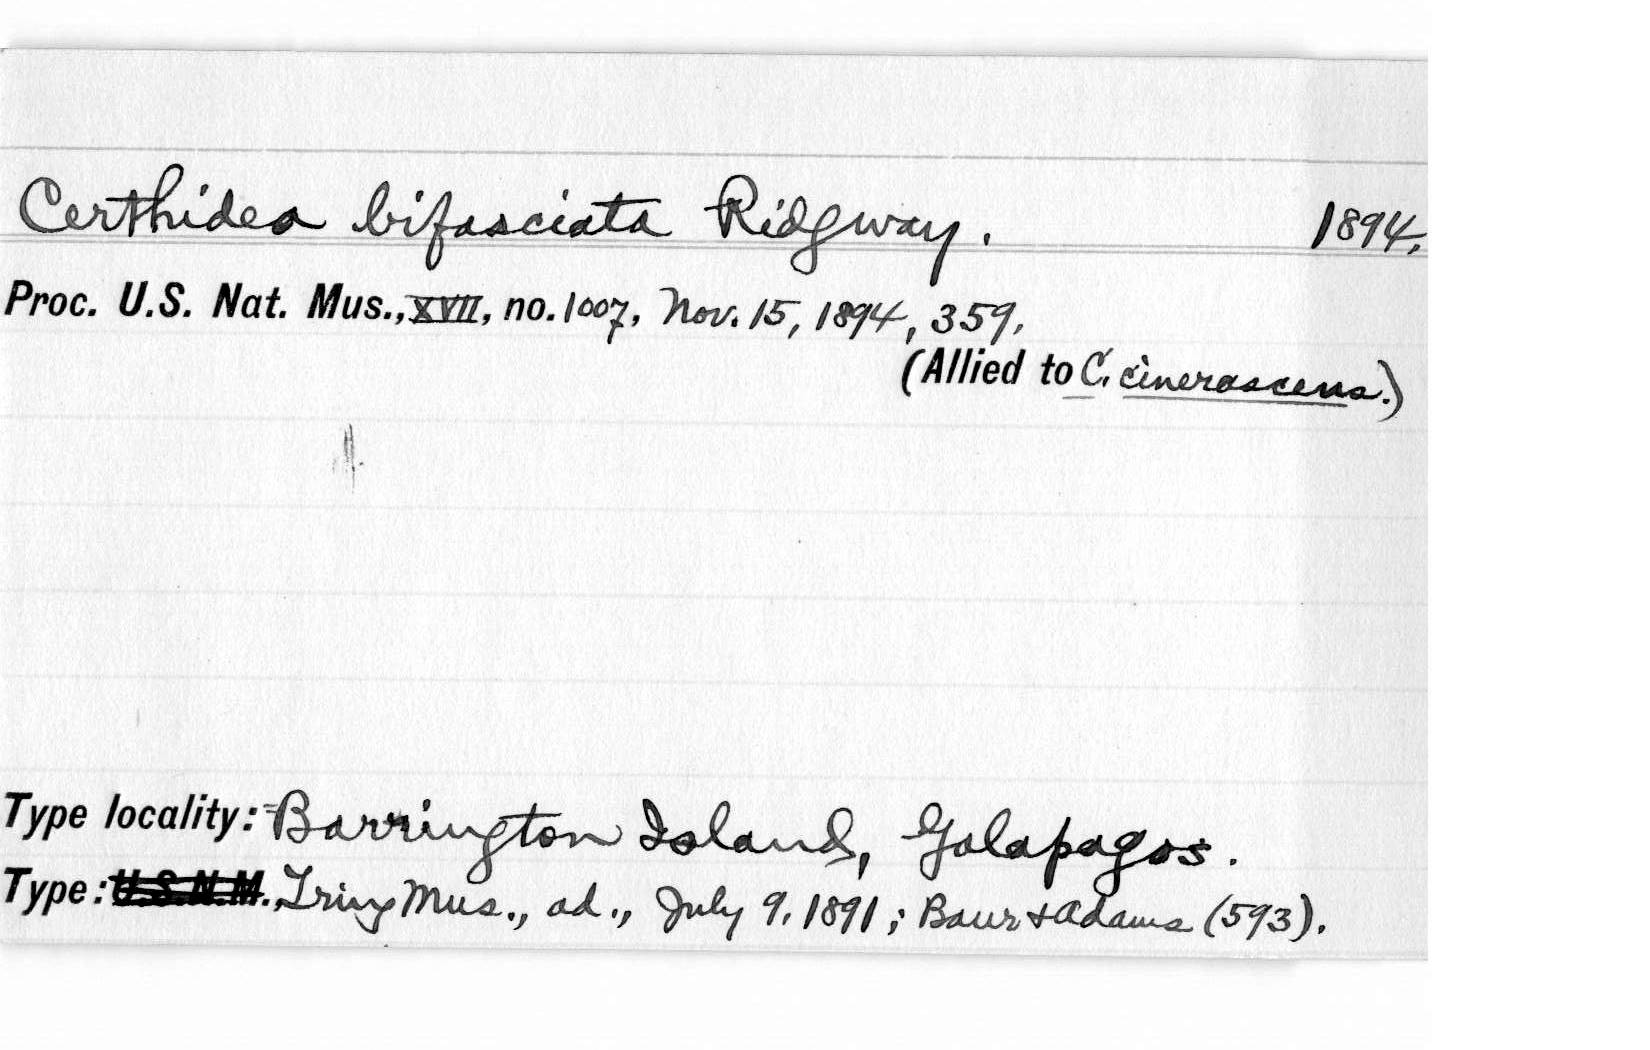 Certhidea bifasciata Ridgway. 1894.
Proc. U.S. Nat. Mus., XVII, no. 1007, Nov. 15, 1894, 359.
(Allied to C. cinerascens.)
Type locality: Barrington Island, Galapagos.
Type: U.S.N.M., Tring Mus., ad., July 9, 1891; Baur & Adams (593).